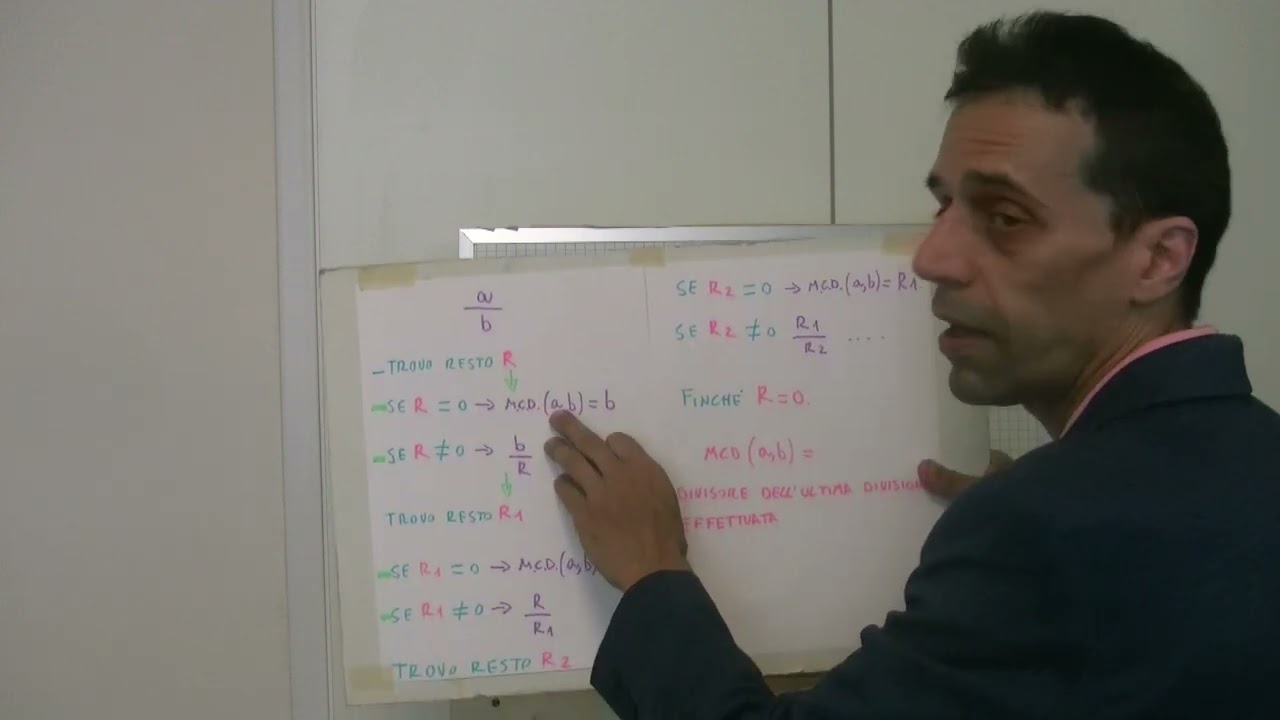 a
b
-TROVO RESTO R
-SE R = 0 → M.C.D.(a,b) = b
-SE R ≠ 0 → b
R
TROVO RESTO R1
-SE R1 = 0 → M.C.D.(a,b)
-SE R1 ≠ 0 → R
R1
TROVO RESTO R2
SE R2 = 0 → M.C.D.(a,b) = R1
SE R2 ≠ 0 R1 ....
R2
FINCHÉ R = 0.
MCD (a,b) =
DIVISORE DELL'ULTIMA DIVISION
EFFETTUATA